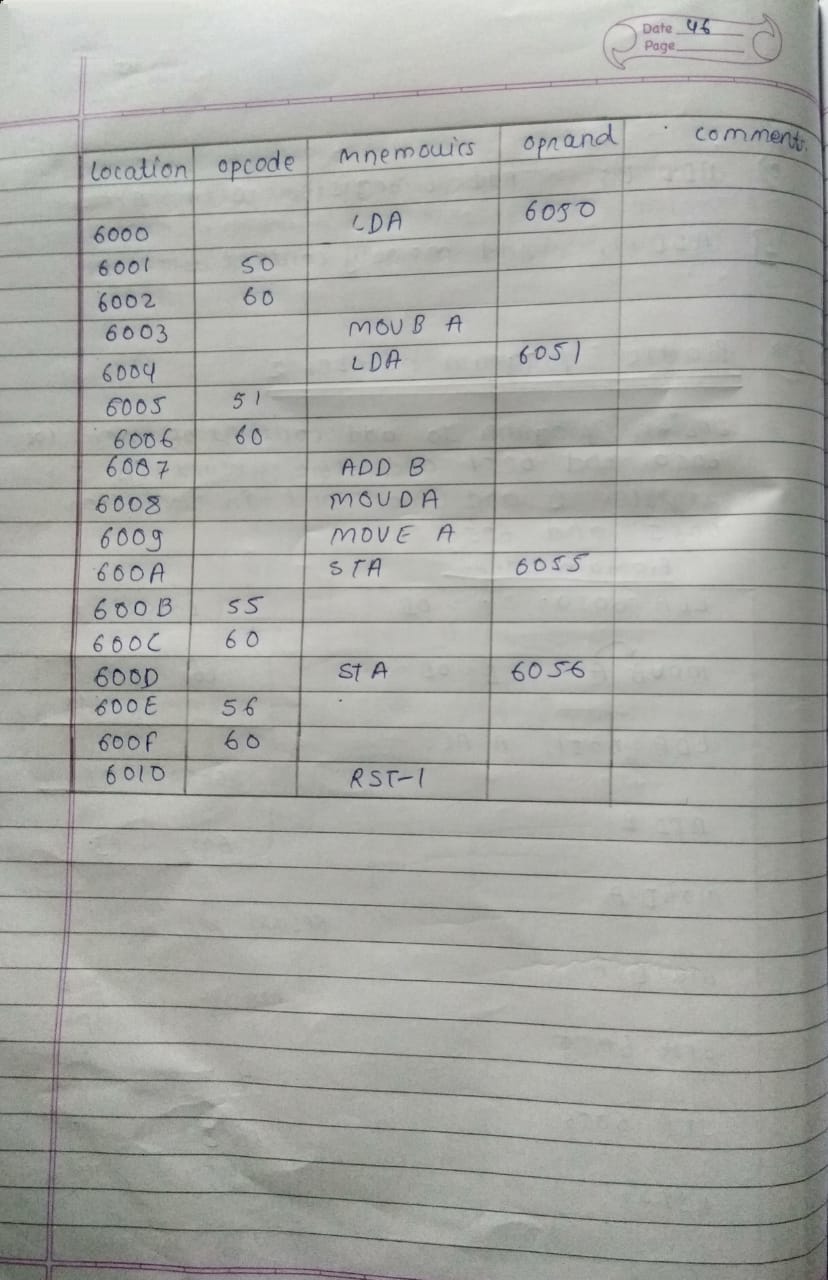 Date 46
Page
location opcode mnemonics oprand comment.
6000 LDA 6050
6001 50
6002 60
6003 MOV B A
6004 LDA 6051
6005 51
6006 60
6007 ADD B
6008 MOV D A
6009 MOVE A
600A STA 6055
600B 55
600C 60
600D STA 6056
600E 56
600F 60
6010 RST-1